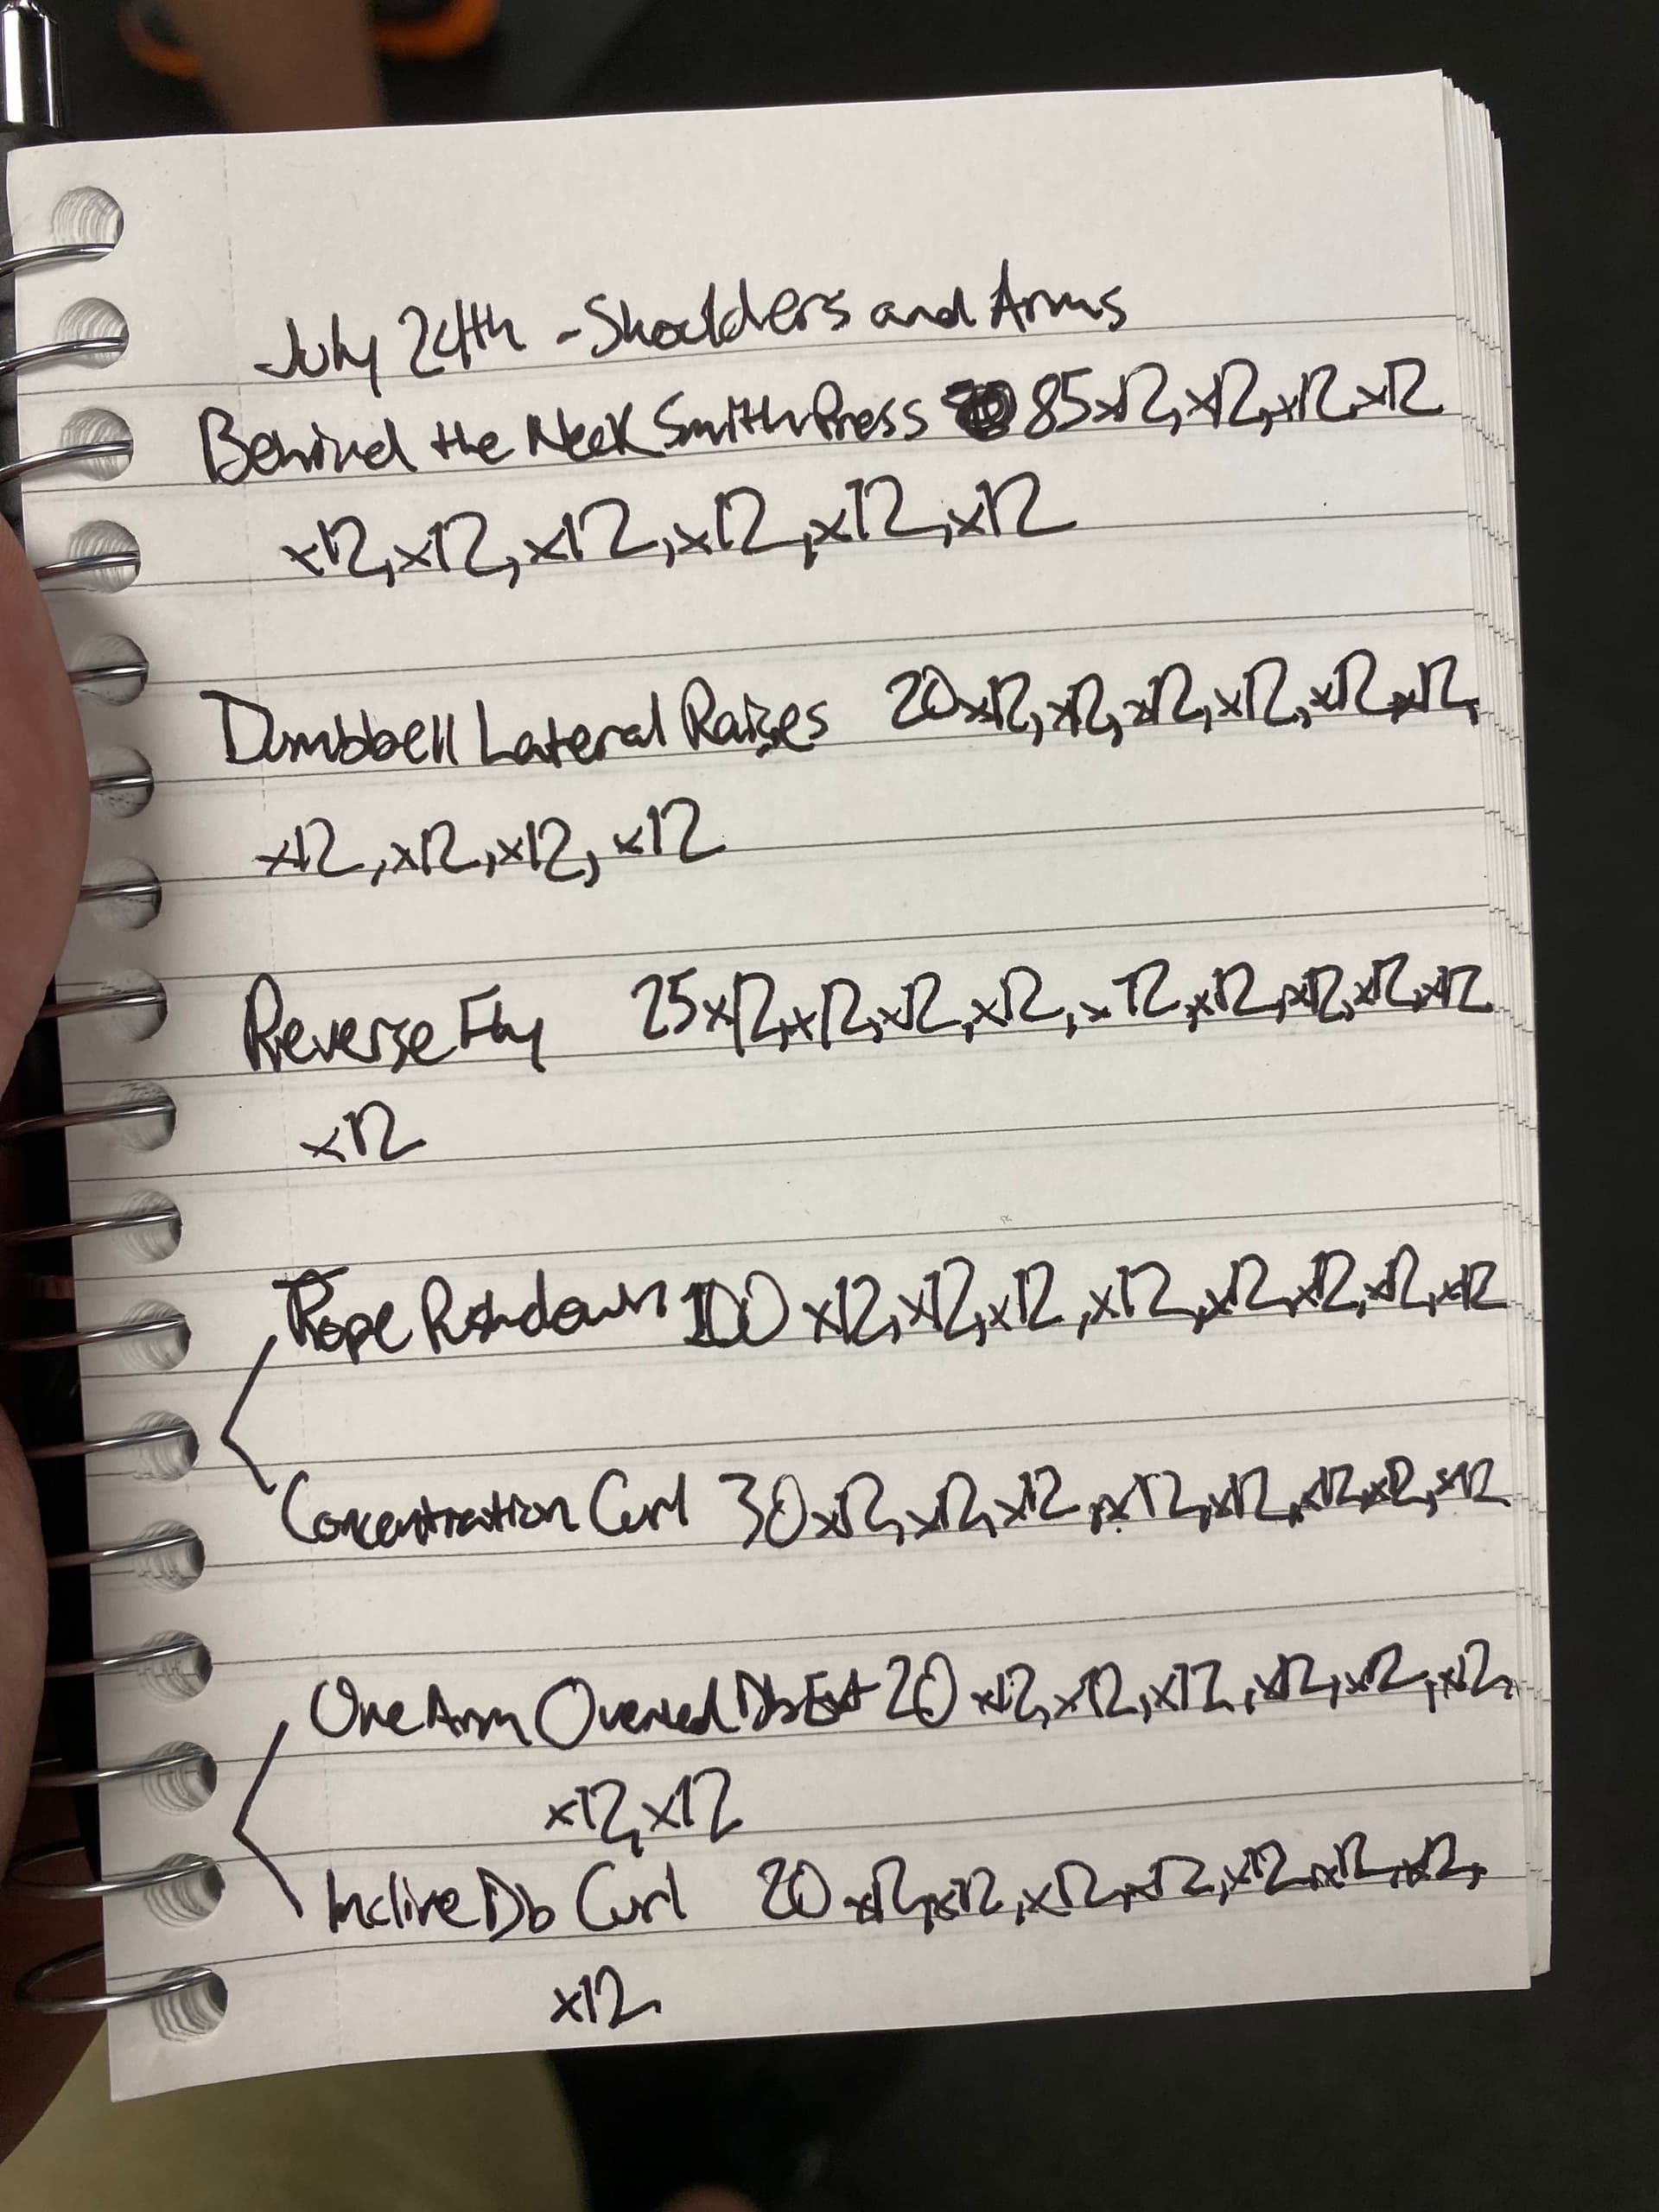 July 24th - Shoulders and Arms
Behind the Neck Smith Press 85x12, x12, x12, x12
x12, x12, x12, x12, x12, x12
Dumbbell Lateral Raises 20x12, x12, x12, x12, x12, x12,
x12, x12, x12, x12
Reverse Fly 25x12, x12, x12, x12, x12, x12, x12, x12, x12
x12
Rope Pushdown 100 x12, x12, x12, x12, x12, x12, x12, x12
Concentration Curl 30x12, x12, x12, x12, x12, x12, x12, x12
One Arm Overhead Db Ext 20 x12, x12, x12, x12, x12, x12,
x12, x12
Incline Db Curl 20 x12, x12, x12, x12, x12, x12, x12,
x12